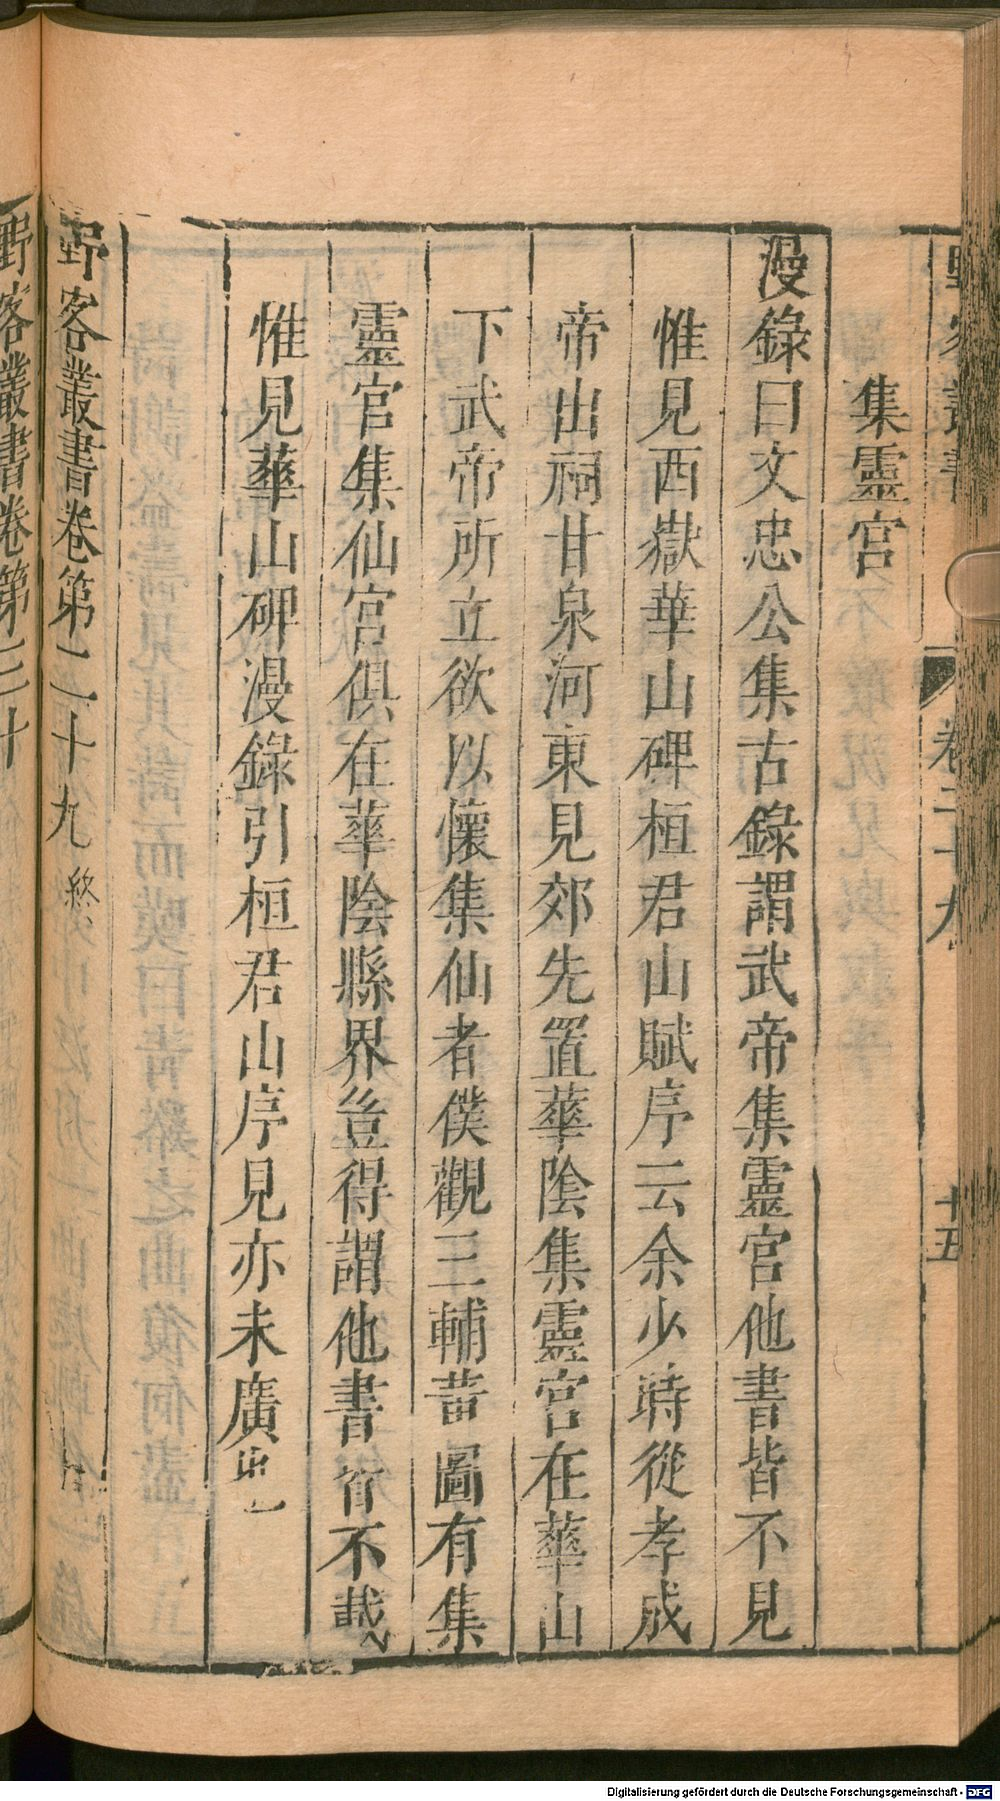 卷二十九
十五
集靈宮
漫錄曰文忠公集古錄謂武帝集靈宮他書皆不見
惟見西嶽華山碑桓君山賦序云余少時從孝成
帝出祠甘泉河東見郊先置華陰集靈宮在華山
下武帝所立欲以懷集仙者僕觀三輔黃圖有集
靈宮集仙宮俱在華陰縣界豈得謂他書皆不載
惟見華山碑漫錄引桓君山序見亦未廣也
野客叢書卷第二十九 終
野客叢書卷第三十
Digitalisierung gefördert durch die Deutsche Forschungsgemeinschaft - DFG